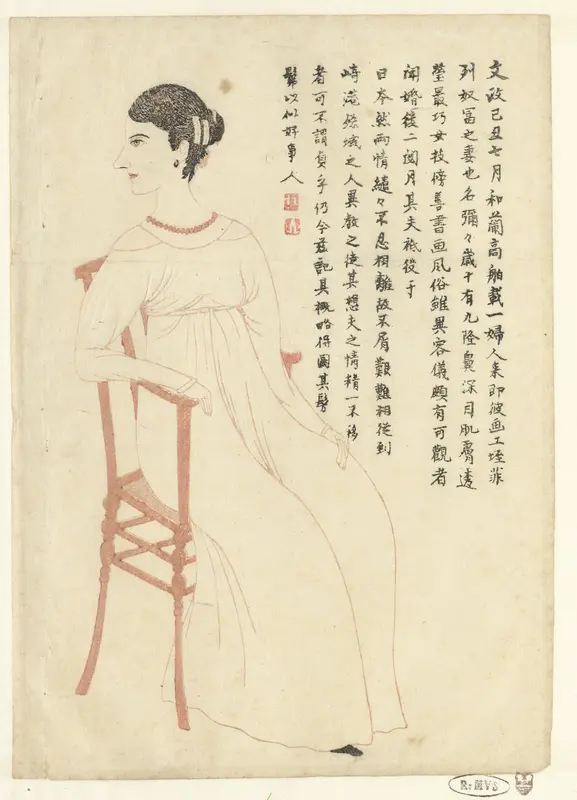 文政己丑七月和蘭商舶載一婦人来即彼画工垤菲
列奴冨之妻也名彌々歳十有九隆鼻深目肌膚透
瑩最巧女技傍善書画風俗雖異容儀頗有可觀者
聞婚後二閲月其夫祗役于
日本然両情繾々不忍相離故不屑艱難相従到
崎港幣域之人異教之徒其想夫之情精一不移
者可不謂貞乎仍今茲記其概略得圖其髣
髴以似好事人
R:MVS